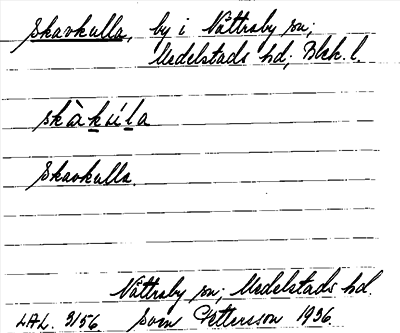 Skavkulla, by i Nättraby sn;
Medelstads hd; Blek. l.
skàksíla
Skavkulla.
Nättraby sn; Medelstads hd.
LAL. 3156 Sven Pettersson 1936.